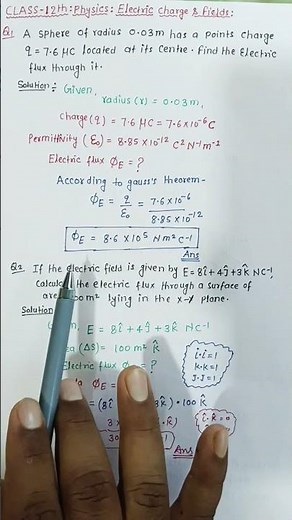 CLASS-12th: Physics: Electric Charge & Fields:
Q1 A sphere of radius 0.03m has a Points charge
q = 7.6 μC located at its Centre. Find the Electric
flux through it.
Solution:- Given,
radius (r) = 0.03m,
charge (q) = 7.6 μC = 7.6×10⁻⁶C
Permittivity (ε₀) = 8.85×10⁻¹² C²N⁻¹m⁻²
Electric flux ΦE = ?
According to gauss's theorem-
ΦE = q/ε₀ = 7.6×10⁻⁶/8.85×10⁻¹²
ΦE = 8.6 × 10⁵ Nm²C⁻¹
Ans
Q2. If the electric field is given by E = 8î+4ĵ+3k̂ NC⁻¹,
the electric flux through a surface of
m² lying in the X-Y plane.
Solution
E = 8î+4ĵ+3k̂ NC⁻¹
(ΔS) = 100m² k̂
Electric flux ΦE = ?
î·î=1
k·k=1
J·J=1
= (8î 3k̂)·100k̂
Ans